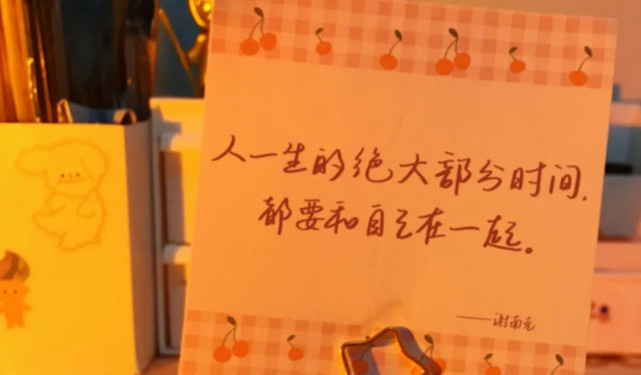 人一生的绝大部分时间,
都要和自己在一起。
——谢南尧